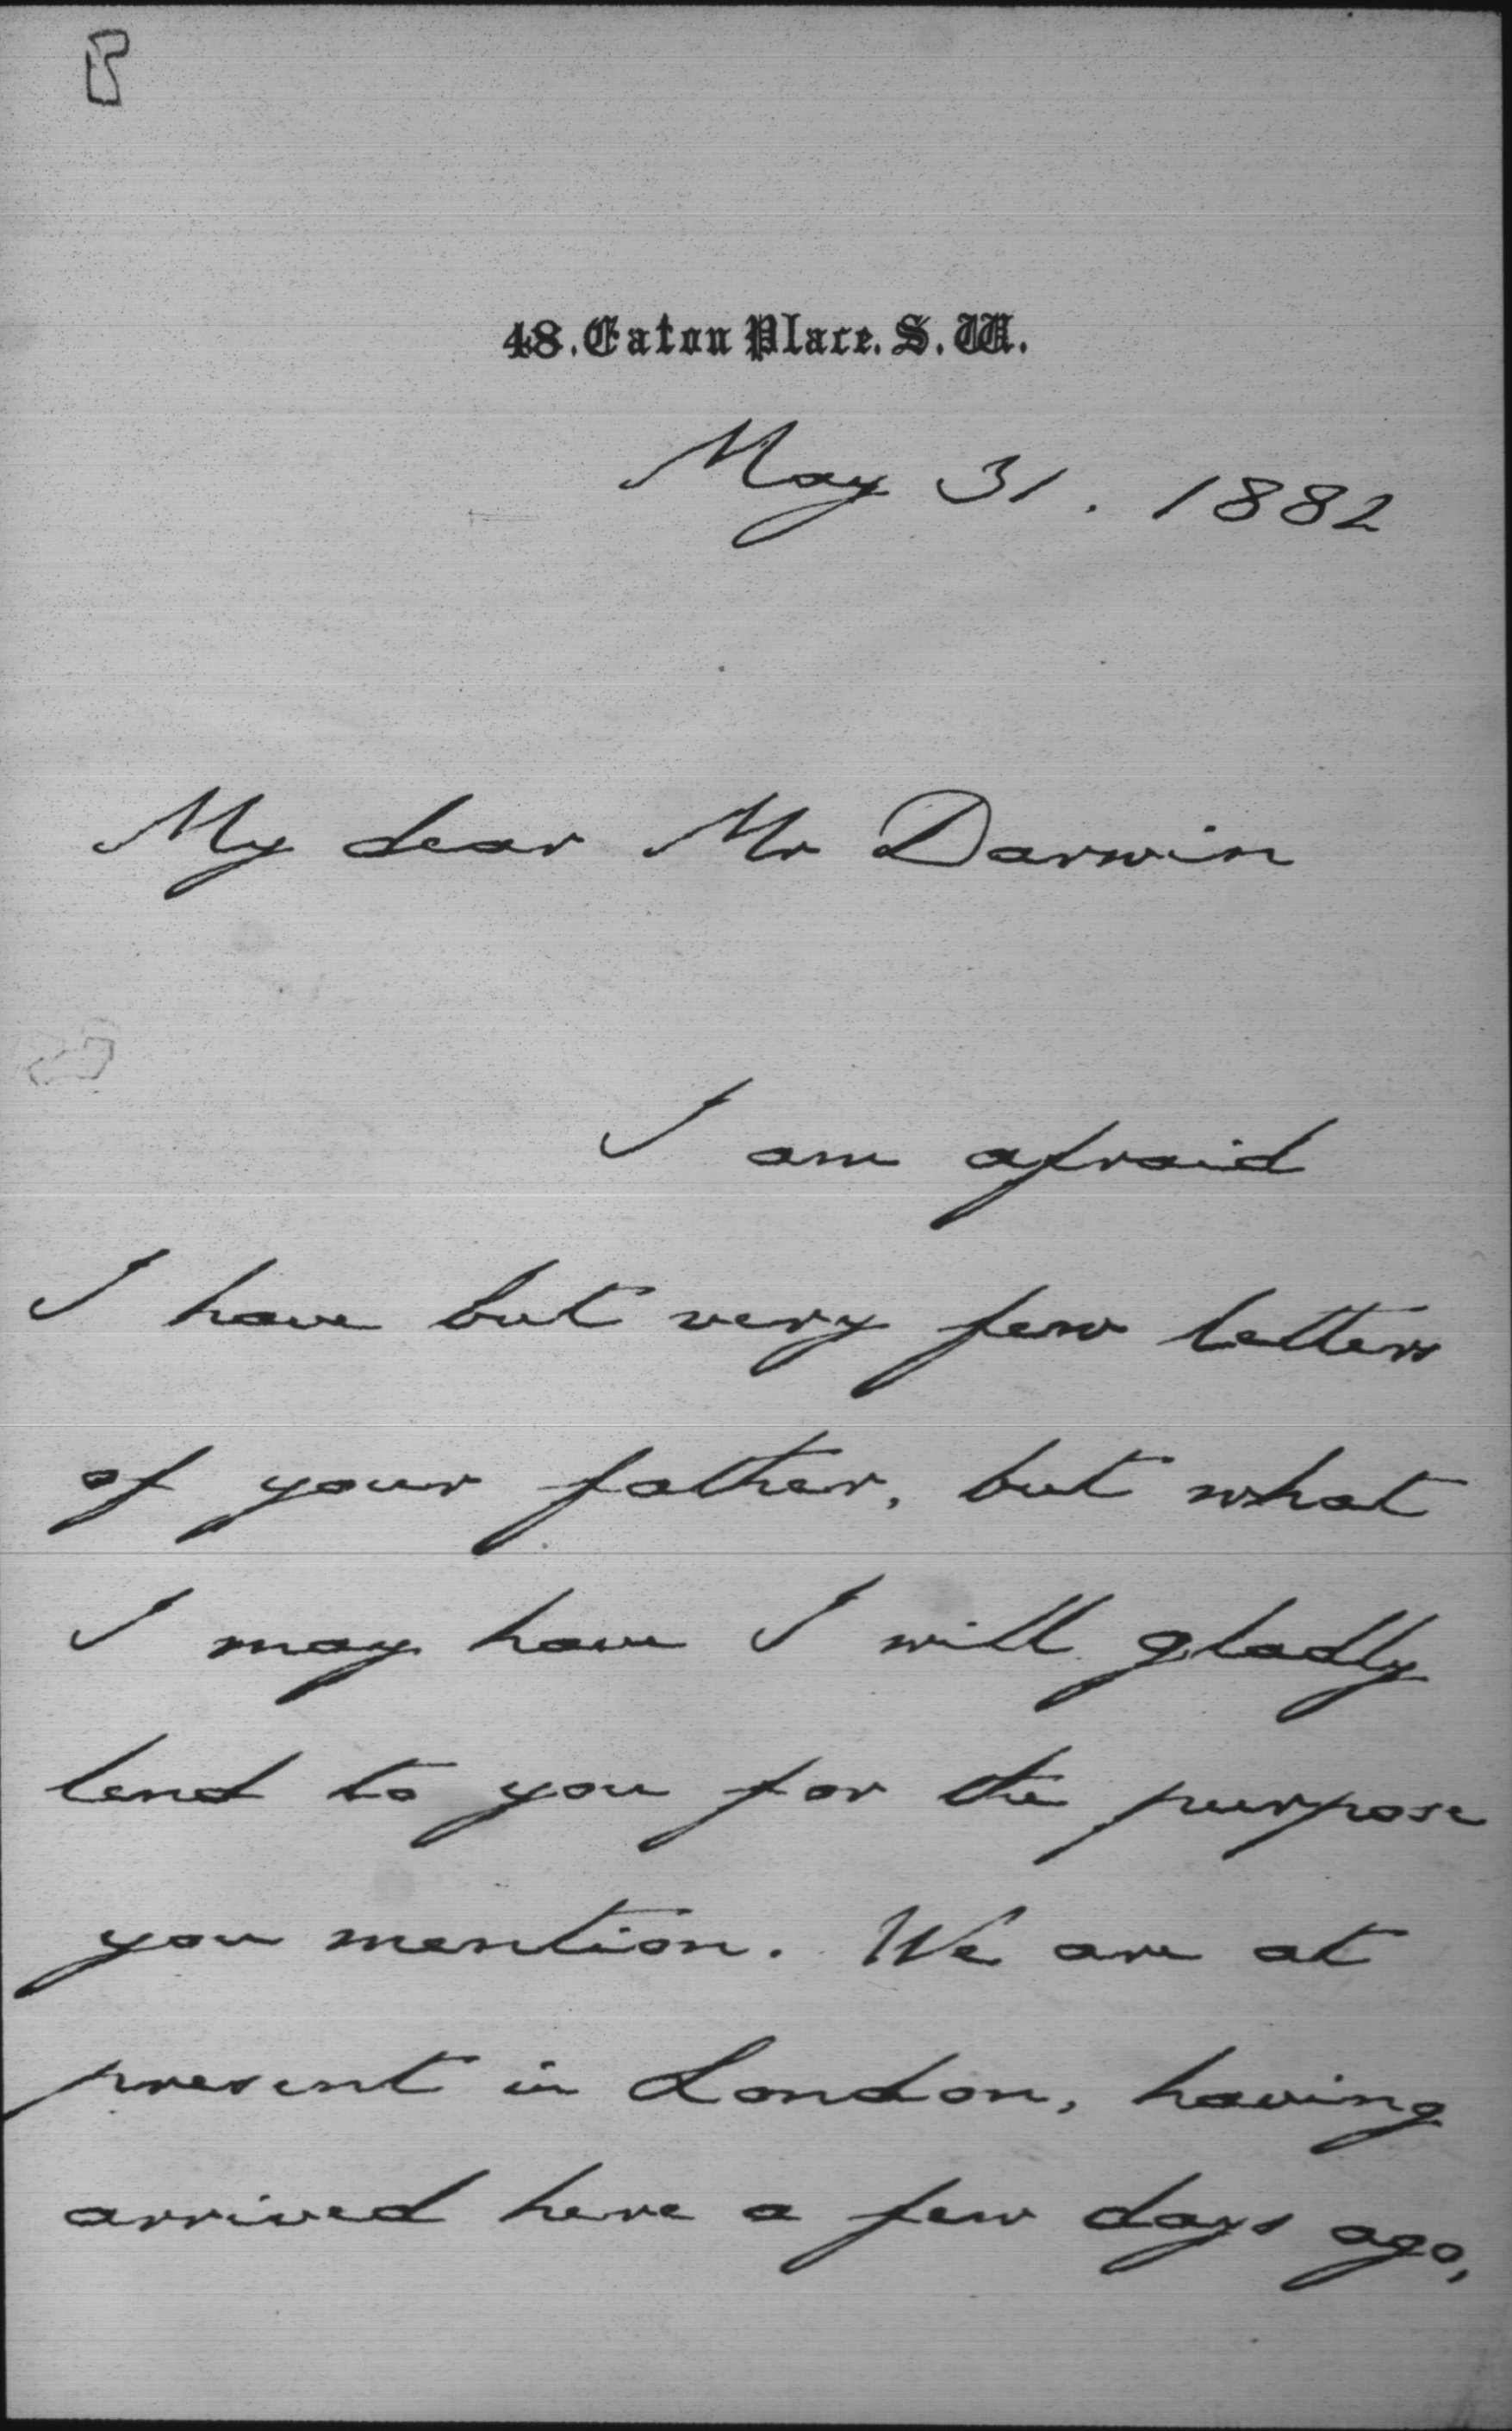 48. Eaton Place. S. W.
May 31. 1882
My dear Mr Darwin
I am afraid
I have but very few letters
of your father, but what
I may have I will gladly
lend to you for the purpose
you mention. We are at
present in London, having
arrived here a few days ago,